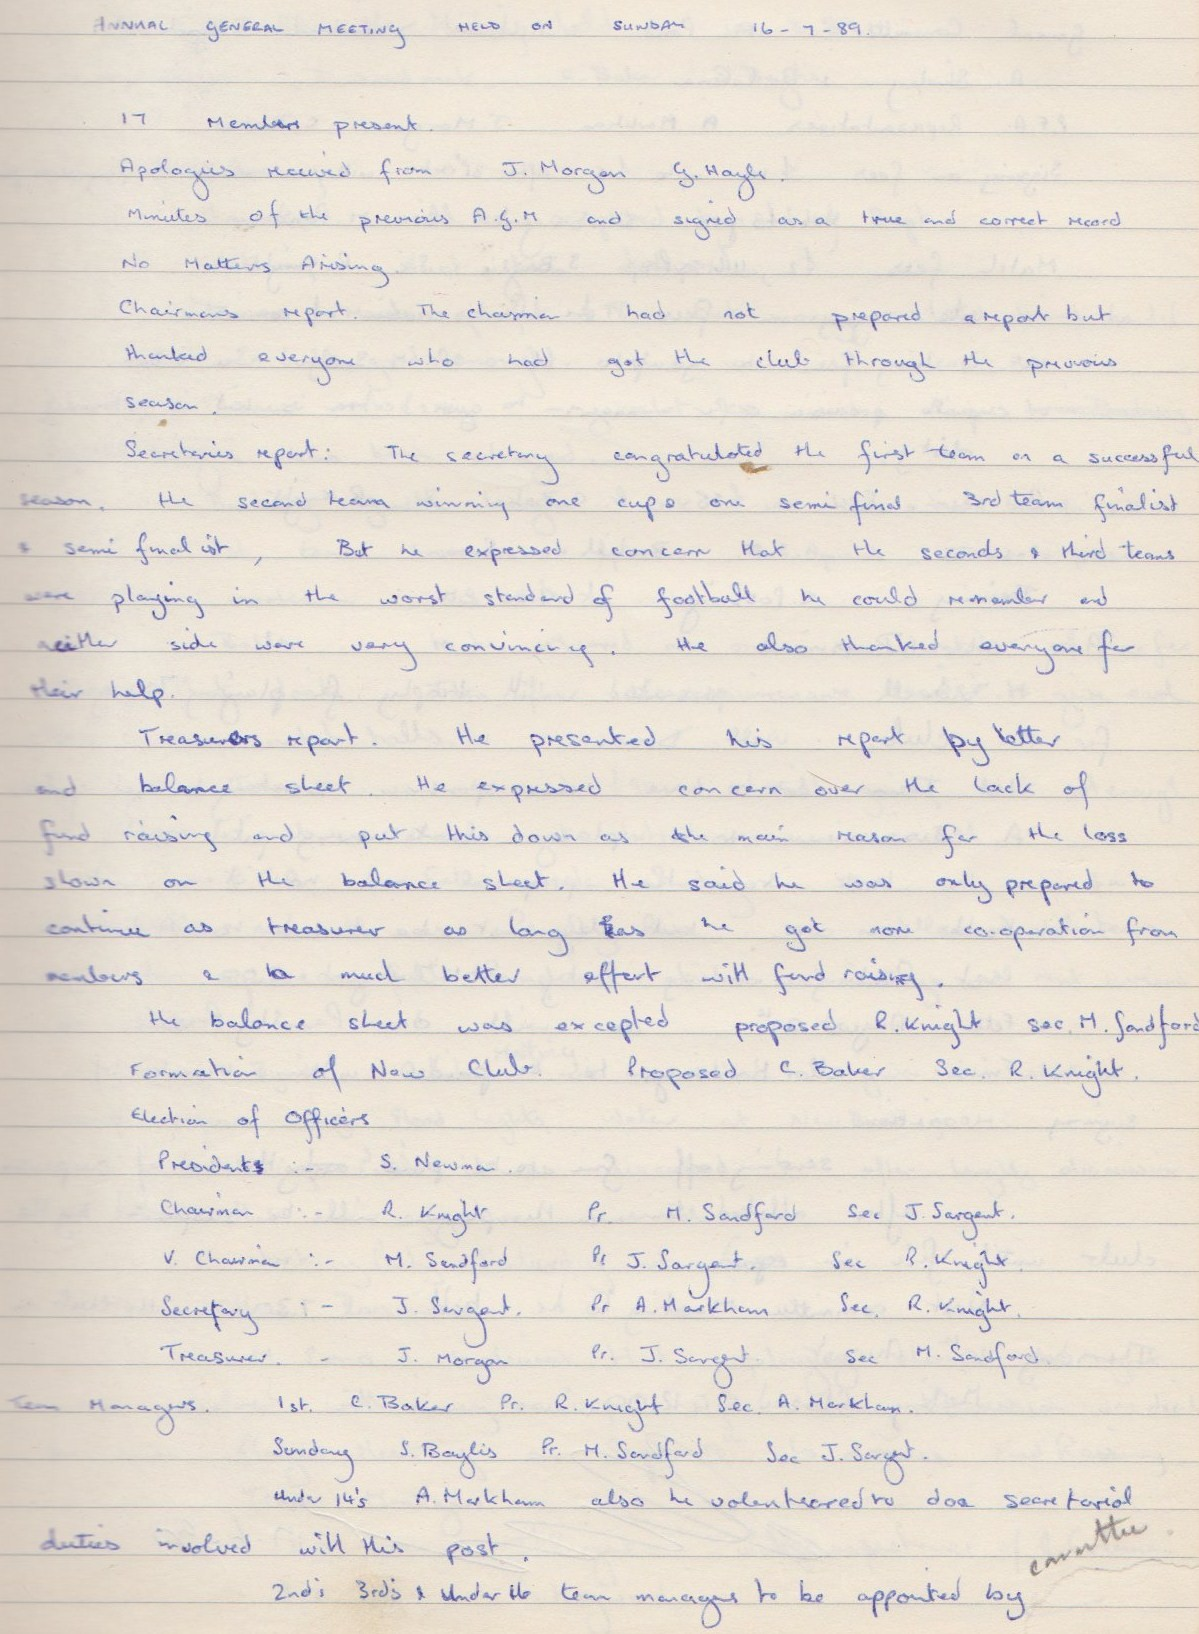 ANNUAL GENERAL MEETING HELD ON SUNDAY 16-7-89.
17 Members present.
Apologies received from J. Morgan G. Hayle.
Minutes of the previous A.G.M and signed as a true and correct record
No Matters Arising.
Chairmans report. The chairman had not prepared a report but
thanked everyone who had got the club through the previous
season.
Secretaries report: The secretary congratulated the first team on a successful
season. the second team winning one cup & one semi final 3rd team finalist
& semi finalist, But he expressed concern that the seconds & third teams
were playing in the worst standard of football he could remember and
neither side were very convincing. He also thanked everyone for
their help.
Treasurers report. He presented his report by letter
and balance sheet. He expressed concern over the lack of
fund raising and put this down as the main reason for the loss
shown on the balance sheet. He said he was only prepared to
continue as treasurer as long as he got more co-operation from
members & a much better effort with fund raising.
The balance sheet was excepted proposed R. Knight sec. M. Sandford
Formation of New Club. Proposed C. Baker Sec. R. Knight.
Election of Officers
Presidents :- S. Newman.
Chairman :- R. Knight Pr. M. Sandford Sec J. Sargent.
V. Chairman :- M. Sandford Pr J. Sargent. Sec R. Knight.
Secretary :- J. Sargent. Pr A. Markham Sec. R. Knight.
Treasurer. - J. Morgan Pr. J. Sargent. Sec M. Sandford.
Team Managers. 1st. C. Baker Pr. R. Knight Sec. A. Markham.
Sunday S. Baylis Pr. M. Sandford Sec J. Sargent.
Under 14's A. Markham also he volenteered to doe secretarial
duties involved with this post.
2nd's 3rd's & Under 16 team managers to be appointed by committee